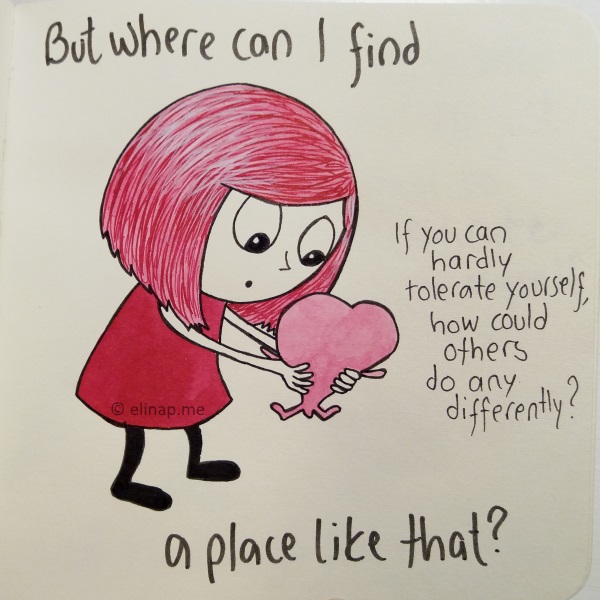 But where can I find
If you can
hardly
tolerate yourself,
how could
others
do any
differently?
© elinap.me
a place like that?